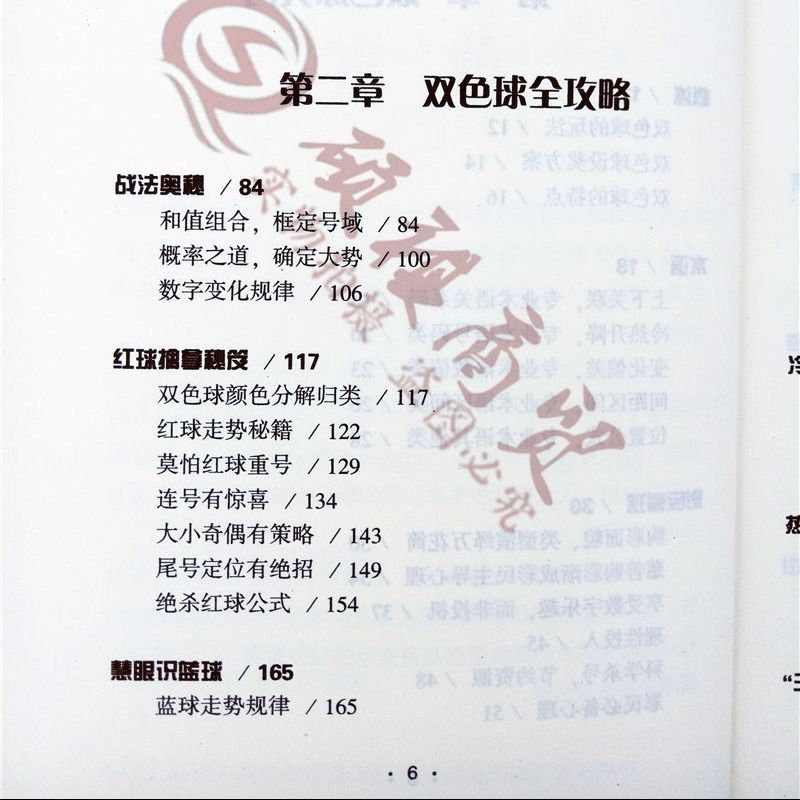 第二章 双色球全攻略
战法奥秘 / 84
和值组合，框定号域 / 84
概率之道，确定大势 / 100
数字变化规律 / 106
红球擒拿秘笈 / 117
双色球颜色分解归类 / 117
红球走势秘籍 / 122
莫怕红球重号 / 129
连号有惊喜 / 134
大小奇偶有策略 / 143
尾号定位有绝招 / 149
绝杀红球公式 / 154
慧眼识蓝球 / 165
蓝球走势规律 / 165
· 6 ·
硕硕商贸
实物拍摄 盗图必究